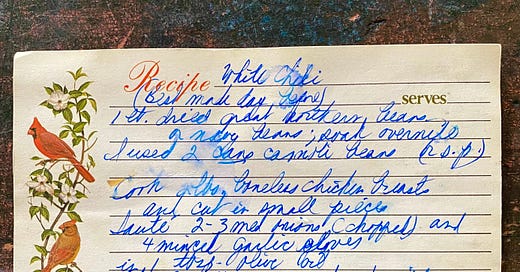 Recipe White Chili
(Best made day before) serves
1 lb. dried great Northern beans
or navy beans; soak overnite
I used 2 cans cannelli beans (r.s.p.)
Cook boneless chicken breasts
and cut in small pieces
Saute 2-3 med onions, (chopped) and
4 minced garlic cloves
in 1 tbsp. olive oil